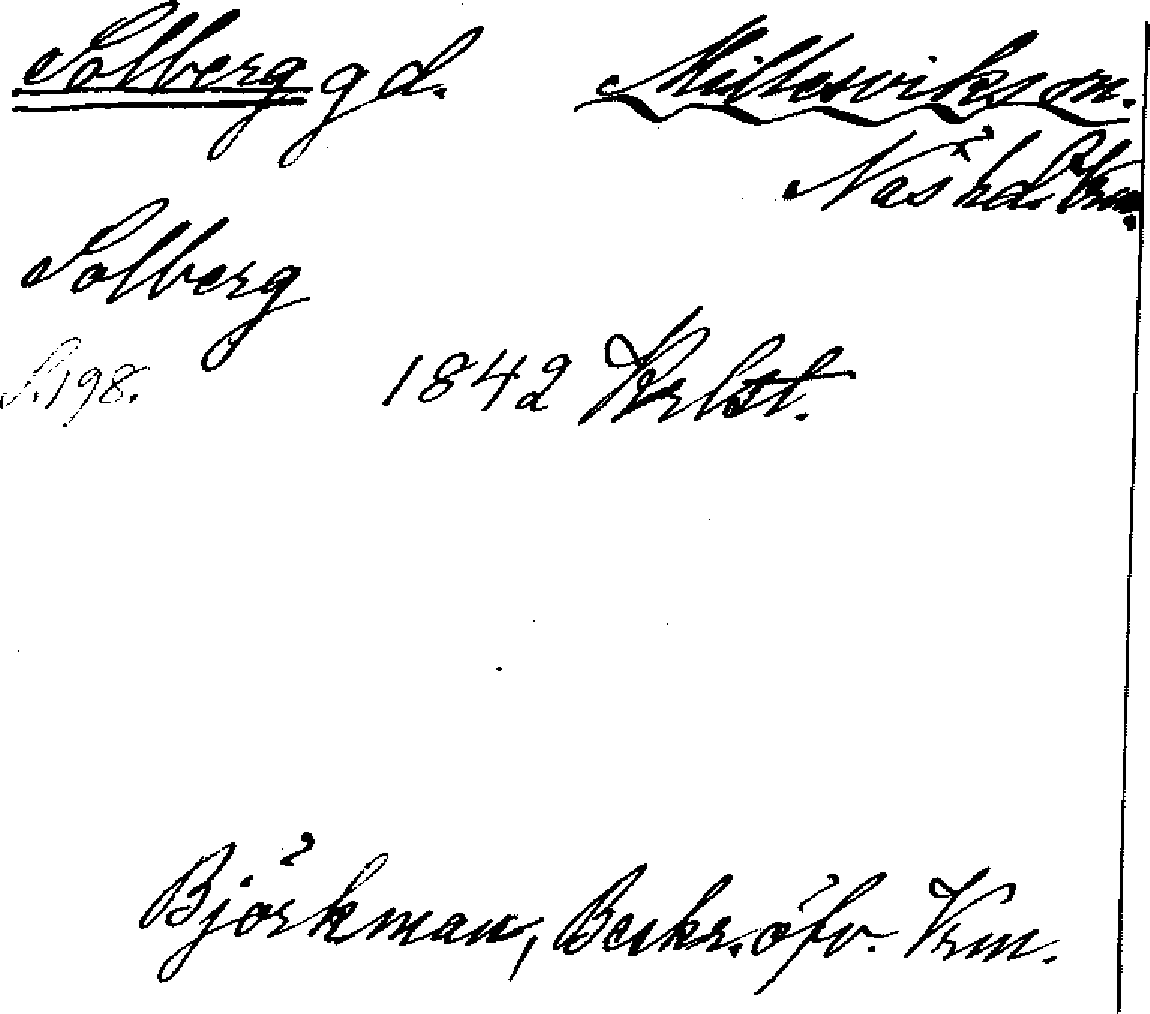 Solberg gd. Millesviks sn.
Näs hd. Vrm.
Solberg
S. 198. 1842 Krlst.
Björkman, Beskr. öfv. Vrm.